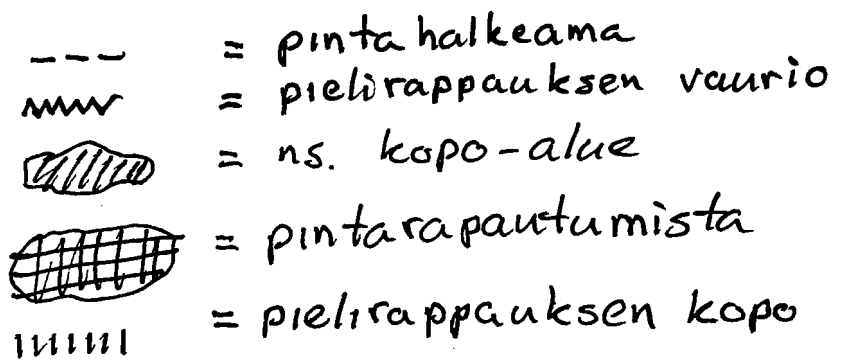 = pintahalkeama
= pielirappauksen vaurio
= ns. kopo-alue
= pintarapautumista
= pielirappauksen kopo